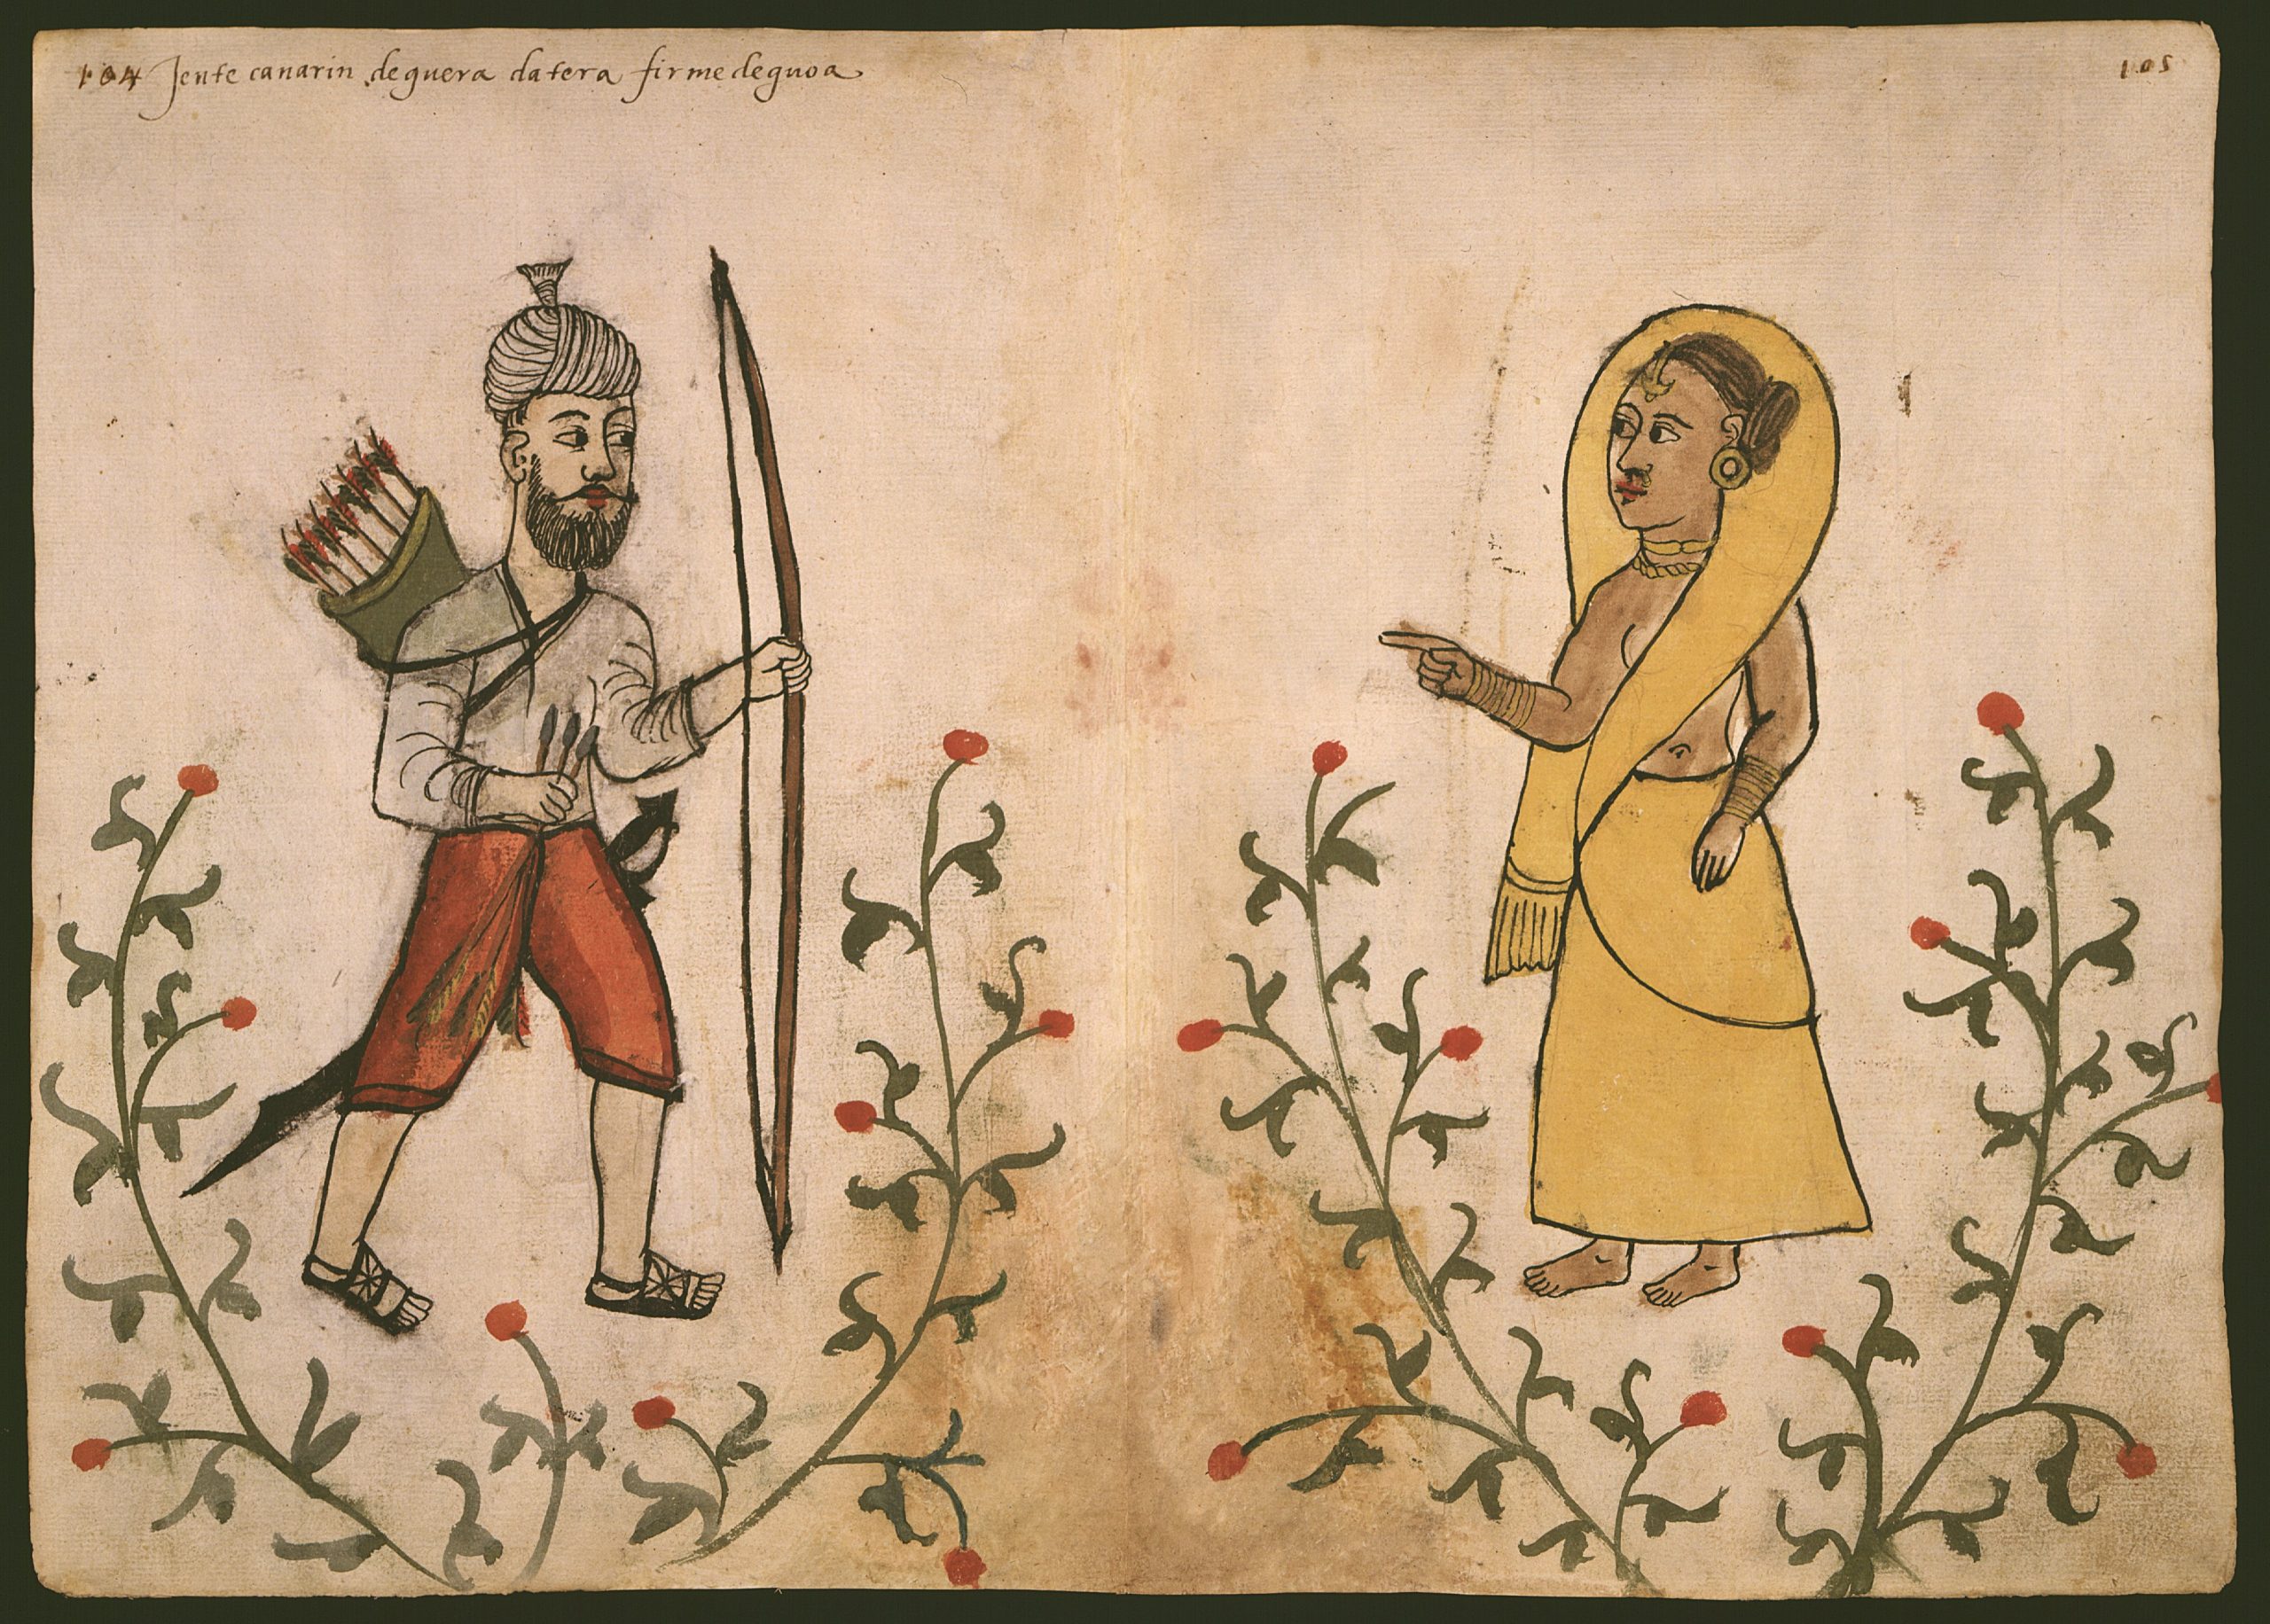 104 Jente canarin de guera da tera firme de guoa
105